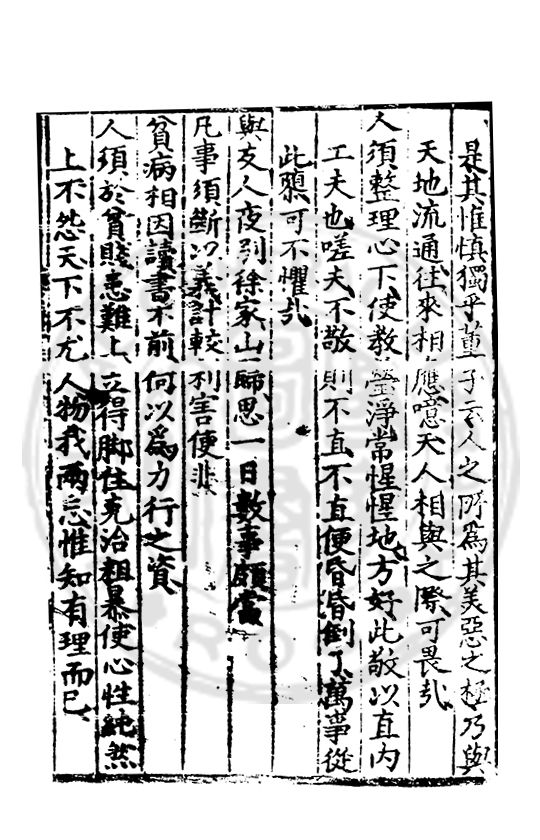 是其惟慎獨乎董子云人之所為其美惡之極乃與
天地流通往來相應噫天人相與之際可畏哉
人須整理心下使教瑩淨常惺惺地方好此敬以直內
工夫也嗟夫不敬則不直不直便昏昏倒了萬事從
此隳可不懼哉
與友人夜別徐家山歸思一日數事頗當
凡事須斷以義計較利害便非
貧病相因讀書不前何以為力行之資
人須於貧賤患難上立得脚住克治粗暴使心性純然
上不怨天下不尤人物我兩忘惟知有理而已